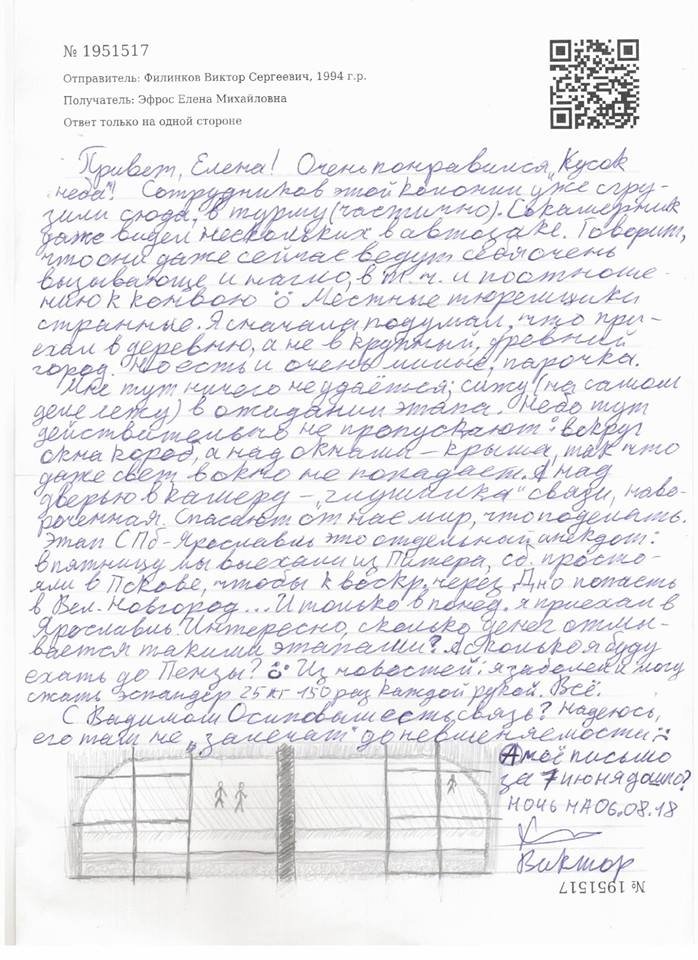 № 1951517
Отправитель: Филинков Виктор Сергеевич, 1994 г.р.
Получатель: Эфрос Елена Михайловна
Ответ только на одной стороне
Привет, Елена! Очень понравился „Кусок
неба"! Сотрудников этой колонии уже сгру-
зили сюда, в турму (частично). Сокамерник
даже видел нескольких в автозаке. Говорит,
что они даже сейчас ведут себя очень
вызывающе и нагло, в т.ч. и по отноше-
нию к конвою ö Местные тюремщики
странные. Я сначала подумал, что при-
ехал в деревню, а не в крупный, древний
город. Но есть и очень милые, парочка.
Мне тут ничего не удаётся; сижу (на самом
деле лежу) в ожидании этапа. Небо тут
действительно не пропускают: вокруг
окна короб, а над окнами – крыша, так что
даже свет в окно не попадает. А над
дверью в камеру – „глушилка" связи, наво-
роченная. Спасают от нас мир, что поделать.
Этап СПб-Ярославль это отдельный анекдот:
в пятницу мы выехали из Питера, сб. просто-
яли в Пскове, чтобы к воскр. через Дно попасть
в Вел. Новгород... И только в понед. я приехал в
Ярославль. Интересно, сколько денег отмы-
вается такими этапами? А сколько я буду
ехать до Пензы? ö Из новостей: я заболел и могу
сжать эспандер 25 кг 150 раз каждой рукой. Всё.
С Вадимом Осиповым есть связь? Надеюсь,
его там не „залечат" до невменяемости
А моё письмо
за 7 июня дошло?
ночь на 06.08.18
Виктор
№ 1951517